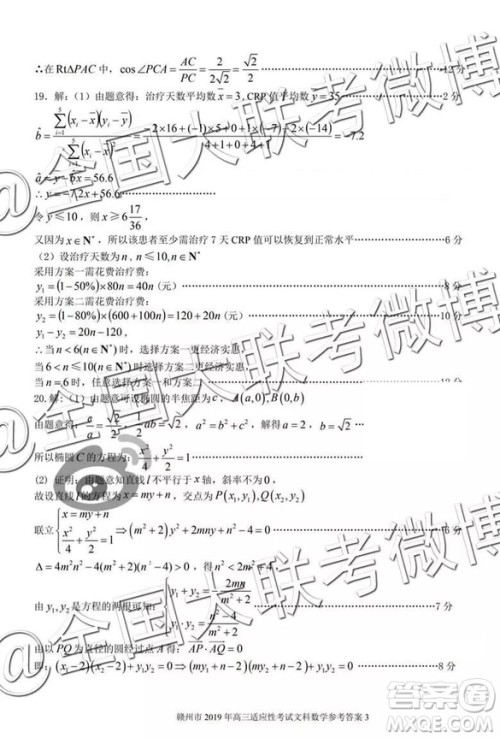 ∴在Rt∆PAC中，cos∠PCA = AC/PC = 2/(2√2) = √2/2 ………12分
19. 解：（1）由题意得：治疗天数平均数 x̄ = 3, CRP值平均 y = 35
b̂ = Σ(xᵢ − x̄)(yᵢ − ȳ) = −2×16+(−1)×5+0+1×(−5)+2×(−14) = −7.2
4+1+0+4+1
â = ȳ − b̂x = 56.6
∴ y = −7.2x + 56.6
令 y ≤ 10，则 x ≥ 6 17/36
又因为 x∈N*，所以该患者至少需治疗 7 天 CRP 值可以恢复到正常水平………6分
（2）设治疗天数为 n , n ≤ 10, n∈N*
采用方案一需花费治疗费：
y₁ = (1−50%)×80n = 40n（元）………8分
采用方案二需花费治疗费：
y₂ = (1−80%)×(600+100n) = 120+20n（元）
y₁ − y₂ = 20n − 120,
∴当 n < 6(n∈N*) 时，选择方案一更经济实惠
当 6 < n ≤ 10(n∈N*) 时选择方案二更经济实惠，
当 n = 6 时，任意选择方案一和方案二 12分
20. 解：（1）由题意可设椭圆的半焦距为 c， A(a,0), B(0,b)
由题意得： a² = b² + c²，解得 a = 2， b = √2
所以椭圆 C 的方程为： x²/4 + y²/2 = 1
(2) 证明：由题意知直线 l 不平行于 x 轴，斜率不为 0，
故设直线 l 的方程为 x = my + n，交点为 P(x₁, y₁), Q(x₂, y₂)
联立 { x = my + n, x²/4 + y²/2 = 1 ⇒ (m² + 2)y² + 2mny + n² − 4 = 0 6分
∆ = 4m²n² − 4(m² + 2)(n² − 4) > 0，得 n² < 2m² + 4
由 y₁, y₂ 是方程的两根可知： { y₁ + y₂ = −2mn/(m² + 2), y₁ · y₂ = (n² − 4)/(m² + 2) 7 分
由以 PQ 为直径的圆经过点 A 得： AP · AQ = 0
即： (x₁ − 2)(x₂ − 2) + y₁y₂ = 0 ⇒ (my₁ + n − 2)(my₂ + n − 2) + y₁y₂ = 0 8 分
赣州市 2019 年高三适应性考试文科数学参考答案 3
@全国大联考微博
@全国大联考微博
答案圈